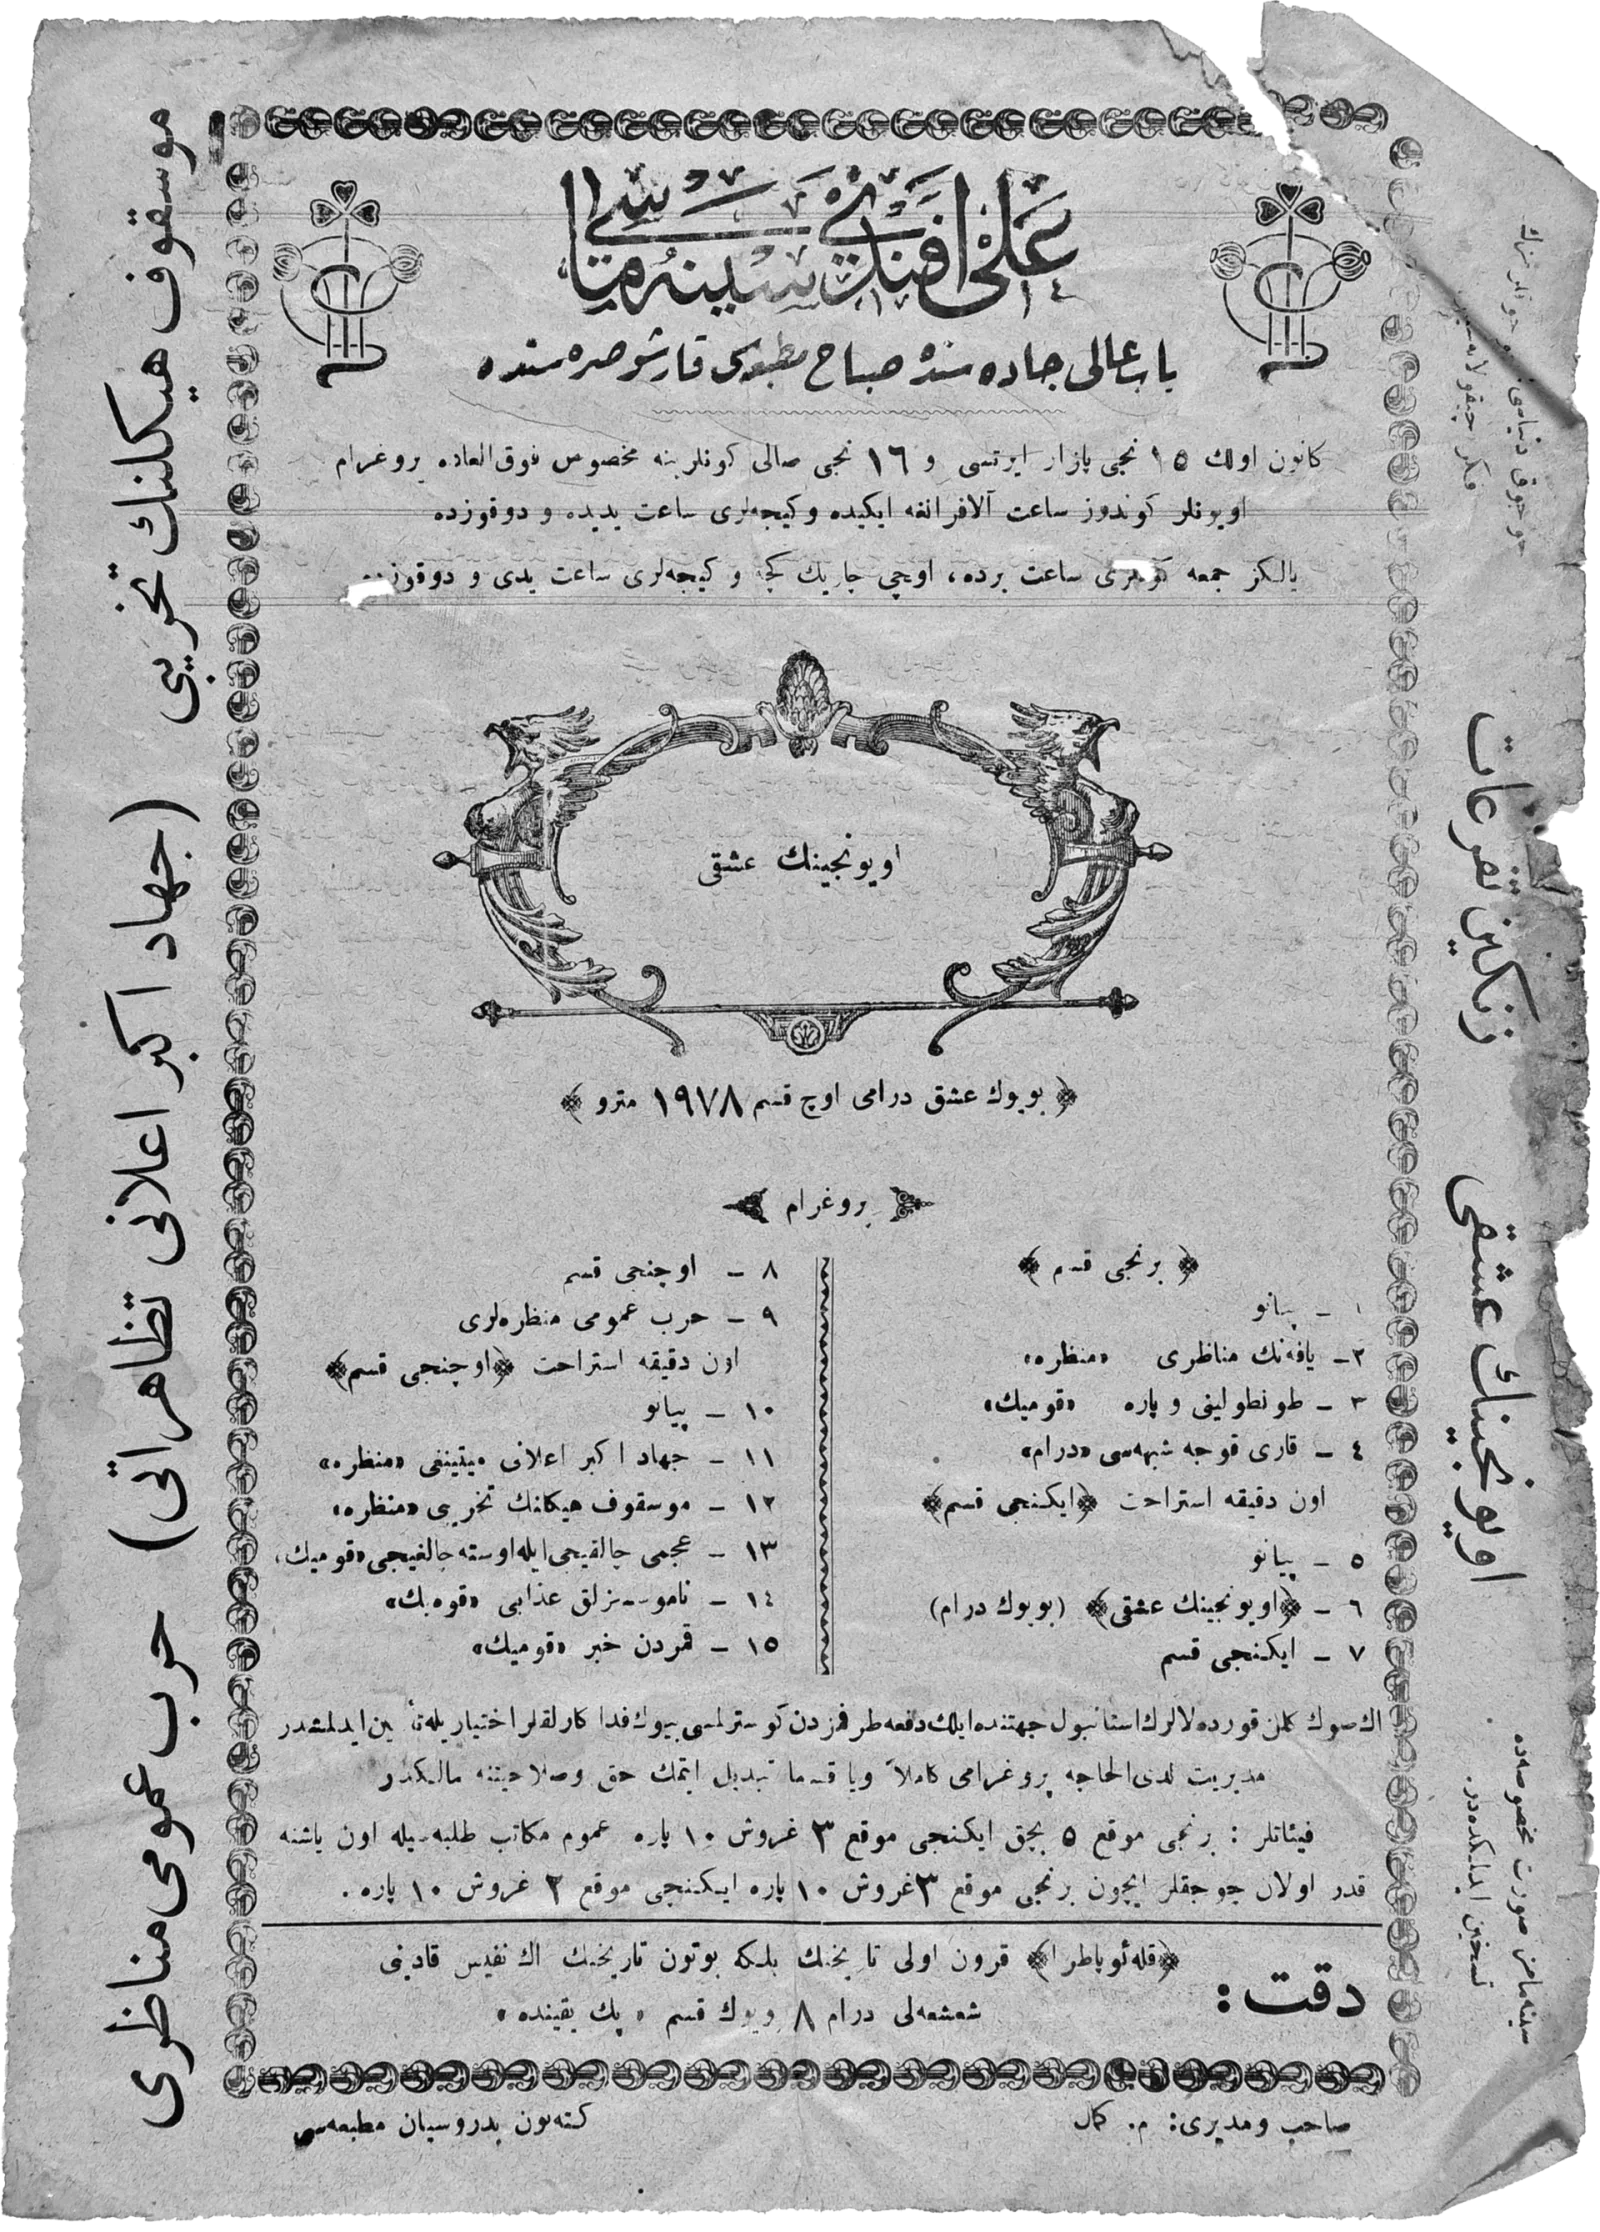 علی افندی سینه ماسی
باب عالی جاده سنده صباح مطبعه سی قارشو صره سنده
كانون اولك ١٥ نجی پازار ایرتسی و ١٦ نجی صالی كونلرینه مخصوص فوق العاده پروغرام
اویونلر كوندوز ساعت آلافرانغه ایكیده و كیجه‌لری ساعت یدیده و دوقوزده
یالكز جمعه كونلری ساعت برده، اوچی چاریك كچه و كیجه‌لری ساعت یدی و دوقوزده
اویونجینك عشقی
﴿ بویوك عشق درامی اوچ قسم ١٩٧٨ مترو ﴾
پروغرام
﴿ برنجی قسم ﴾
١ – پیانو
٢ – یافه‌نك مناظری «منظره»
٣ – طونطولینی و پاره «قومیك»
٤ – قاری قوجه شبهه‌سی «درام»
اون دقیقه استراحت ﴿ایكنجی قسم﴾
٥ – پیانو
٦ – ﴿اویونجینك عشقی﴾ (بویوك درام)
٧ – ایكنجی قسم
٨ – اوچنجی قسم
٩ – حرب عمومی منظره‌لری
اون دقیقه استراحت ﴿اوچنجی قسم﴾
١٠ – پیانو
١١ – جهاد اكبر اعلانی میتینغی «منظره»
١٢ – موسقوف هیكلنك تخریبی «منظره»
١٣ – عجمی چالغیجی ایله اوسته چالغیجی «قومیك»
١٤ – ناموسسزلق عذابی «قومیك»
١٥ – قمردن خبر «قومیك»
اك صوك كلن قورده‌لالرك استانبول جهتنده ایلك دفعه طرفمزدن كوسترلمسی بیوك فدا كارلقلر اختیاریله تأمین ایدلمشدر
مدیریت لدی الحاجه پروغرامی كاملاً ویا قسما تبدیل ایتمك حق و صلاحیتنه مالكدر
فیئاتلر : برنجی موقع ٥ بچق ایكنجی موقع ٣ غروش ١٠ پاره عموم مكاتب طلبه‌سیله اون یاشنه
قدر اولان چوجقلر ایچون برنجی موقع ٣ غروش ١٠ پاره ایكنجی موقع ٢ غروش ١٠ پاره .
دقت :
﴿قله‌ئوپاطرا﴾ قرون اولی تاریخنك بلكه بوتون تاریخك اك نفیس قادینی
شعشعه‌لی درام ٨ بویوك قسم « پك یقینده »
صاحب و مدیری: م. كمال
كته‌ون بدروسیان مطبعه‌سی
موسقوف هیكلنك تخریبی (جهاد اكبر اعلانی تظاهراتی) حرب عمومی مناظری
زنكین تفرعات اویونجینك عشقی
سینه‌مامز صورت مخصوصه‌ده
تسخین ایدلمكده‌در.